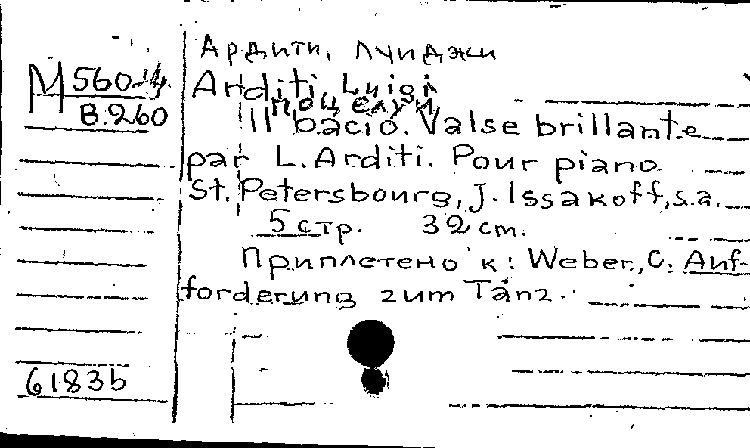 Ардити, Луиджи
М 560-14
В.260
Arditi, Luigi
поцелуй
Il bacio. Valse brillante
par L. Arditi. Pour piano.
St. Petersbourg, J. Issakoff, s.a.
5 стр. 32 cm.
Приплетено к: Weber, C. Auf-
forderung zum Tanz.
6183b